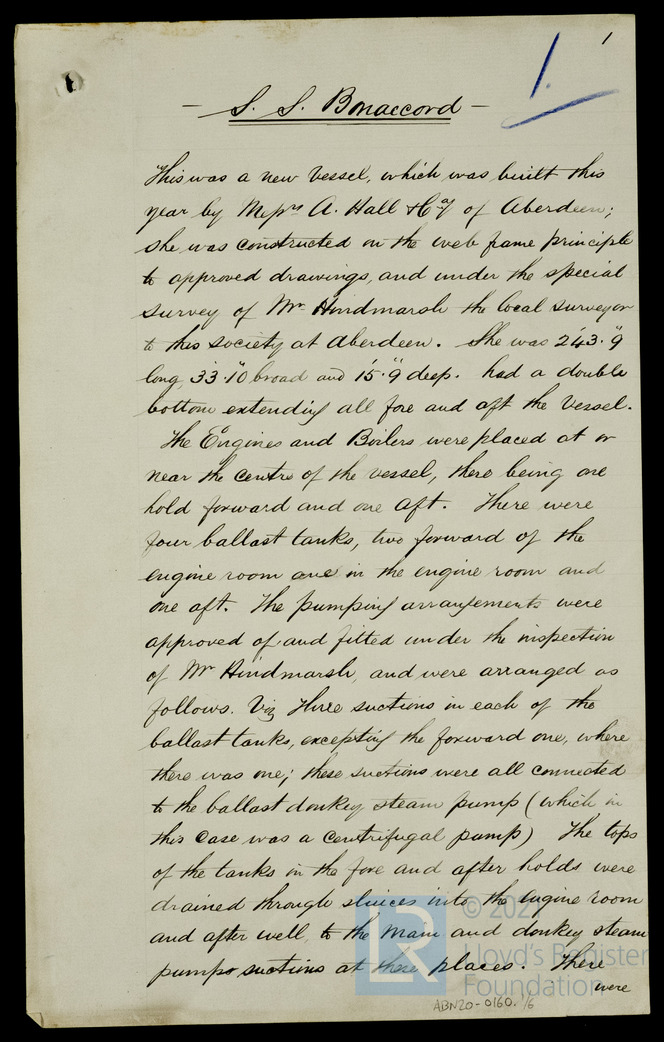 1
1.
- S. S. Bonaccord -
This was a new Vessel, which was built this
year by Messrs A. Hall & Coy of Aberdeen;
she was constructed on the web frame principle
to approved drawings, and under the special
survey of Mr. Hindmarsh the local surveyor
to this society at Aberdeen. She was 243'.9"
long, 33'.10" broad and 15'.9" deep. had a double
bottom extending all fore and aft the Vessel.
The Engines and Boilers were placed at or
near the centre of the vessel, there being one
hold forward and one aft. There were
four ballast tanks, two forward of the
engine room one in the engine room and
one aft. The pumping arrangements were
approved of and fitted under the inspection
of Mr Hindmarsh, and were arranged as
follows. Viz Three suctions in each of the
ballast tanks, excepting the forward one, where
there was one; these suctions were all connected
to the ballast donkey steam pump (which in
this case was a centrifugal pump) The tops
of the tanks in the fore and after holds were
drained through sluices into the engine room
and after well, to the main and donkey steam
pumps suctions at these places. There
were
ABN20-0160. 1/6
LR
Lloyd's Register
Foundation